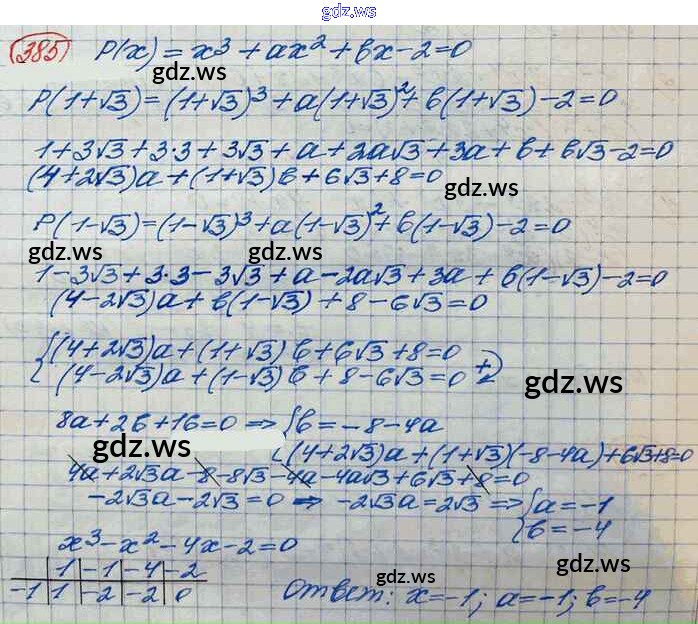 gdz.ws
385 P(x) = x³ + ax² + bx - 2 = 0
gdz.ws
P(1+√3) = (1+√3)³ + a(1+√3)² + b(1+√3) - 2 = 0
gdz.ws
1 + 3√3 + 3·3 + 3√3 + a + 2a√3 + 3a + b + b√3 - 2 = 0
(4+2√3)a + (1+√3)b + 6√3 + 8 = 0
gdz.ws
P(1-√3) = (1-√3)³ + a(1-√3)² + b(1-√3) - 2 = 0
gdz.ws gdz.ws
1 - 3√3 + 3·3 - 3√3 + a - 2a√3 + 3a + b(1-√3) - 2 = 0
(4-2√3)a + b(1-√3) + 8 - 6√3 = 0
{(4+2√3)a + (1+√3)b + 6√3 + 8 = 0
(4-2√3)a + (1-√3)b + 8 - 6√3 = 0 +
gdz.ws
8a + 2b + 16 = 0 ⇒ {b = -8 - 4a
gdz.ws
(4+2√3)a + (1+√3)(-8-4a) + 6√3 + 8 = 0
4a + 2√3a - 8 - 8√3 - 4a - 4a√3 + 6√3 + 8 = 0
-2√3a - 2√3 = 0 ⇒ -2√3a = 2√3 ⇒ {a = -1
b = -4
gdz.ws
x³ - x² - 4x - 2 = 0
1 -1 -4 -2
gdz.ws gdz.ws
-1 1 -2 -2 0
Ответ: x = -1; a = -1; b = -4
gdz.ws